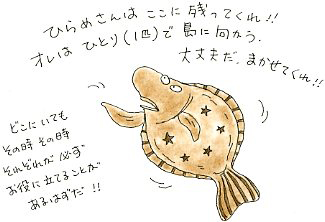 ひらめさんは ここに 残ってくれ!!
オレは ひとり(1匹)で 島に向かう.
大丈夫だ. まかせてくれ!!
どこにいても
その時 その時
それぞれが 必ず
お役に立てることが
あるはずだ !!